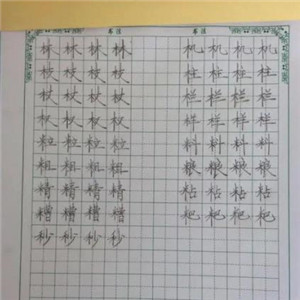 书法 书法
林林林林 机机机机
枝枝枝枝 柱柱柱柱
杖杖杖杖 栏栏栏栏
权权权权 样样样样
粒粒粒粒 料料料料
粗粗粗粗 粮粮粮粮
精精精精 粘粘粘粘
糟糟糟糟 粑粑粑粑
秒秒秒秒